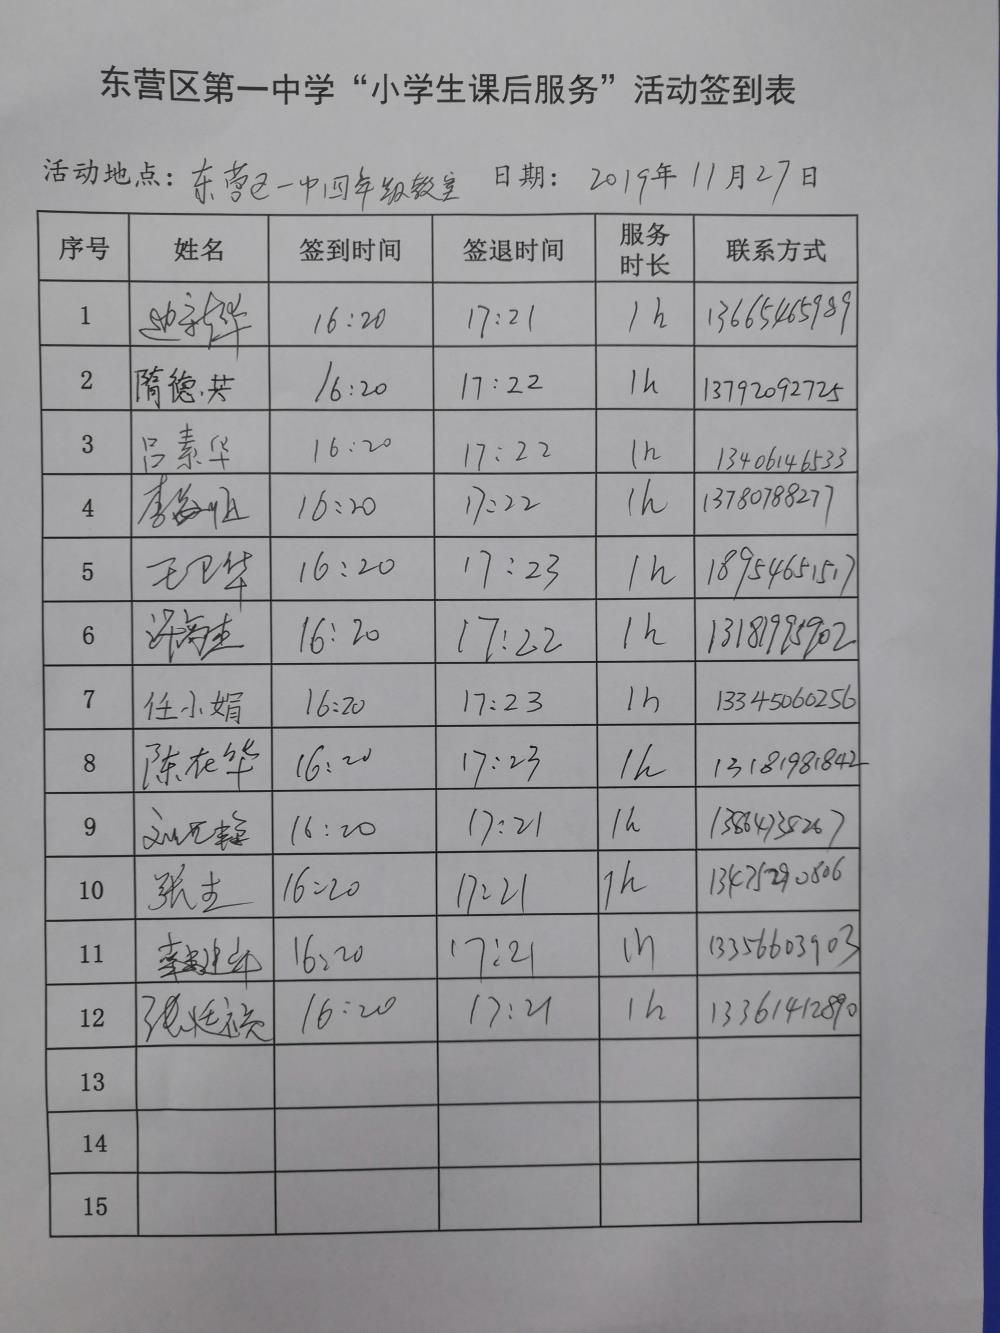 东营区第一中学“小学生课后服务”活动签到表
活动地点：东营区一中四年级教室 日期：2019年11月27日
序号 姓名 签到时间 签退时间 服务时长 联系方式
1 16:20 17:21 1h 13665465989
2 隋德共 16:20 17:22 1h 13792092725
3 吕素华 16:20 17:22 1h 13406146533
4 16:20 17:22 1h 13780788277
5 王卫华 16:20 17:23 1h 18954651517
6 16:20 17:22 1h 13181995902
7 任小娟 16:20 17:23 1h 13345060256
8 陈在华 16:20 17:23 1h 13181981842
9 16:20 17:21 1h 13864735267
10 张志 16:20 17:21 1h 13475290806
11 16:20 17:21 1h 13356603903
12 16:20 17:21 1h 13361412890
13
14
15